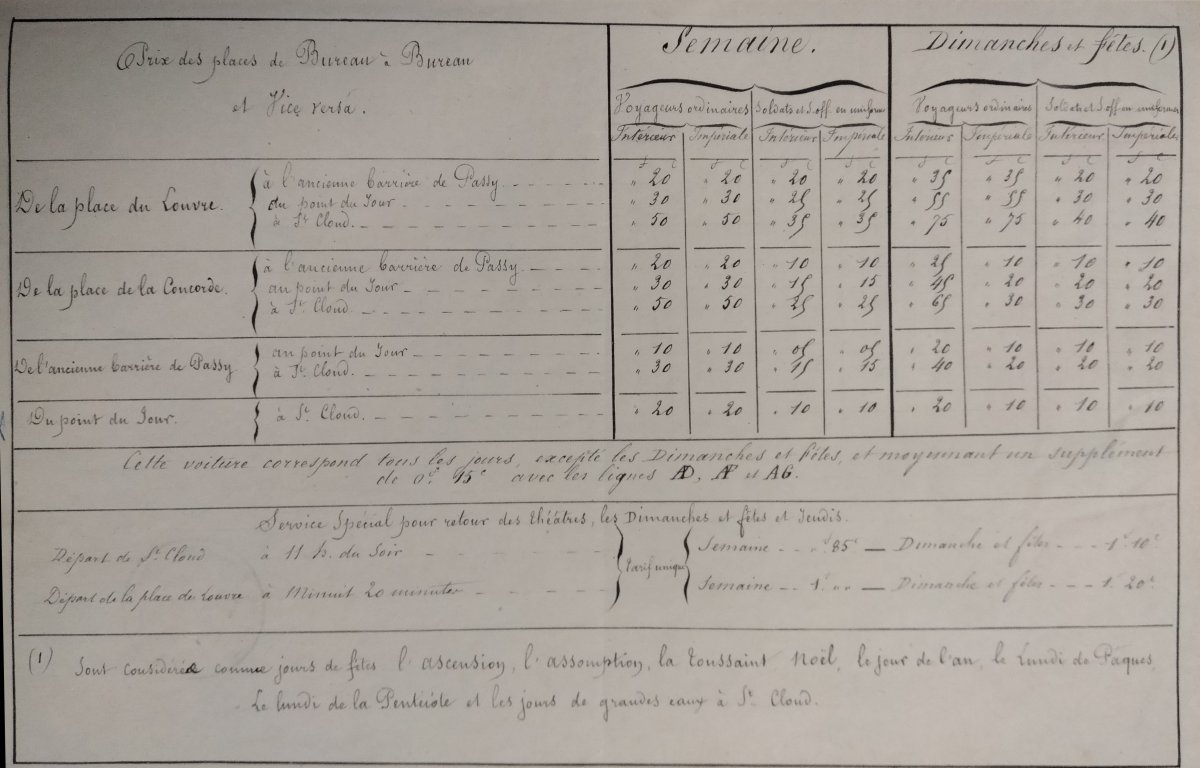 Prix des places de Bureau à Bureau
et Vice versâ.
Semaine.
Dimanches et fêtes. (1)
Voyageurs ordinaires Soldats et S. off. en uniforme Voyageurs ordinaires Soldats et S. off. en uniforme
Intérieur Impériale Intérieur Impériale Intérieur Impériale Intérieur Impériale
f c f c f c f c f c f c f c f c
De la place du Louvre.
à l'ancienne barrière de Passy " 20 " 20 " 20 " 20 " 35 " 35 " 20 " 20
du point du Jour " 30 " 30 " 25 " 25 " 55 " 55 " 30 " 30
à St. Cloud. " 50 " 50 " 35 " 35 " 75 " 75 " 40 " 40
De la place de la Concorde.
à l'ancienne barrière de Passy " 20 " 20 " 10 " 10 " 25 " 10 " 10 " 10
au point du Jour " 30 " 30 " 15 " 15 " 45 " 20 " 20 " 20
à St. Cloud " 50 " 50 " 25 " 25 " 65 " 30 " 30 " 30
De l'ancienne barrière de Passy
au point du Jour " 10 " 10 " 05 " 05 " 20 " 10 " 10 " 10
à St. Cloud. " 30 " 30 " 15 " 15 " 40 " 20 " 20 " 20
Du point du Jour.
à St. Cloud. " 20 " 20 " 10 " 10 " 20 " 10 " 10 " 10
Cette voiture correspond tous les jours, excepté les Dimanches et fêtes, et moyennant un supplément
de 0f. 15c avec les lignes AD, AF et AG.
Service Spécial pour retour des théâtres, les Dimanches et fêtes et Jeudis.
Départ de St. Cloud à 11 h. du Soir
Départ de la place du Louvre à Minuit 20 minutes
Tarif unique
Semaine " f. 85c — Dimanche et fêtes 1f. 10c
Semaine 1f. " " — Dimanche et fêtes 1f. 20c.
(1) Sont considérés comme jours de fêtes l'ascension, l'assomption, la toussaint noël, le jour de l'an, le Lundi de Pâques,
Le lundi de la Pentecôte et les jours de grandes eaux à St. Cloud.